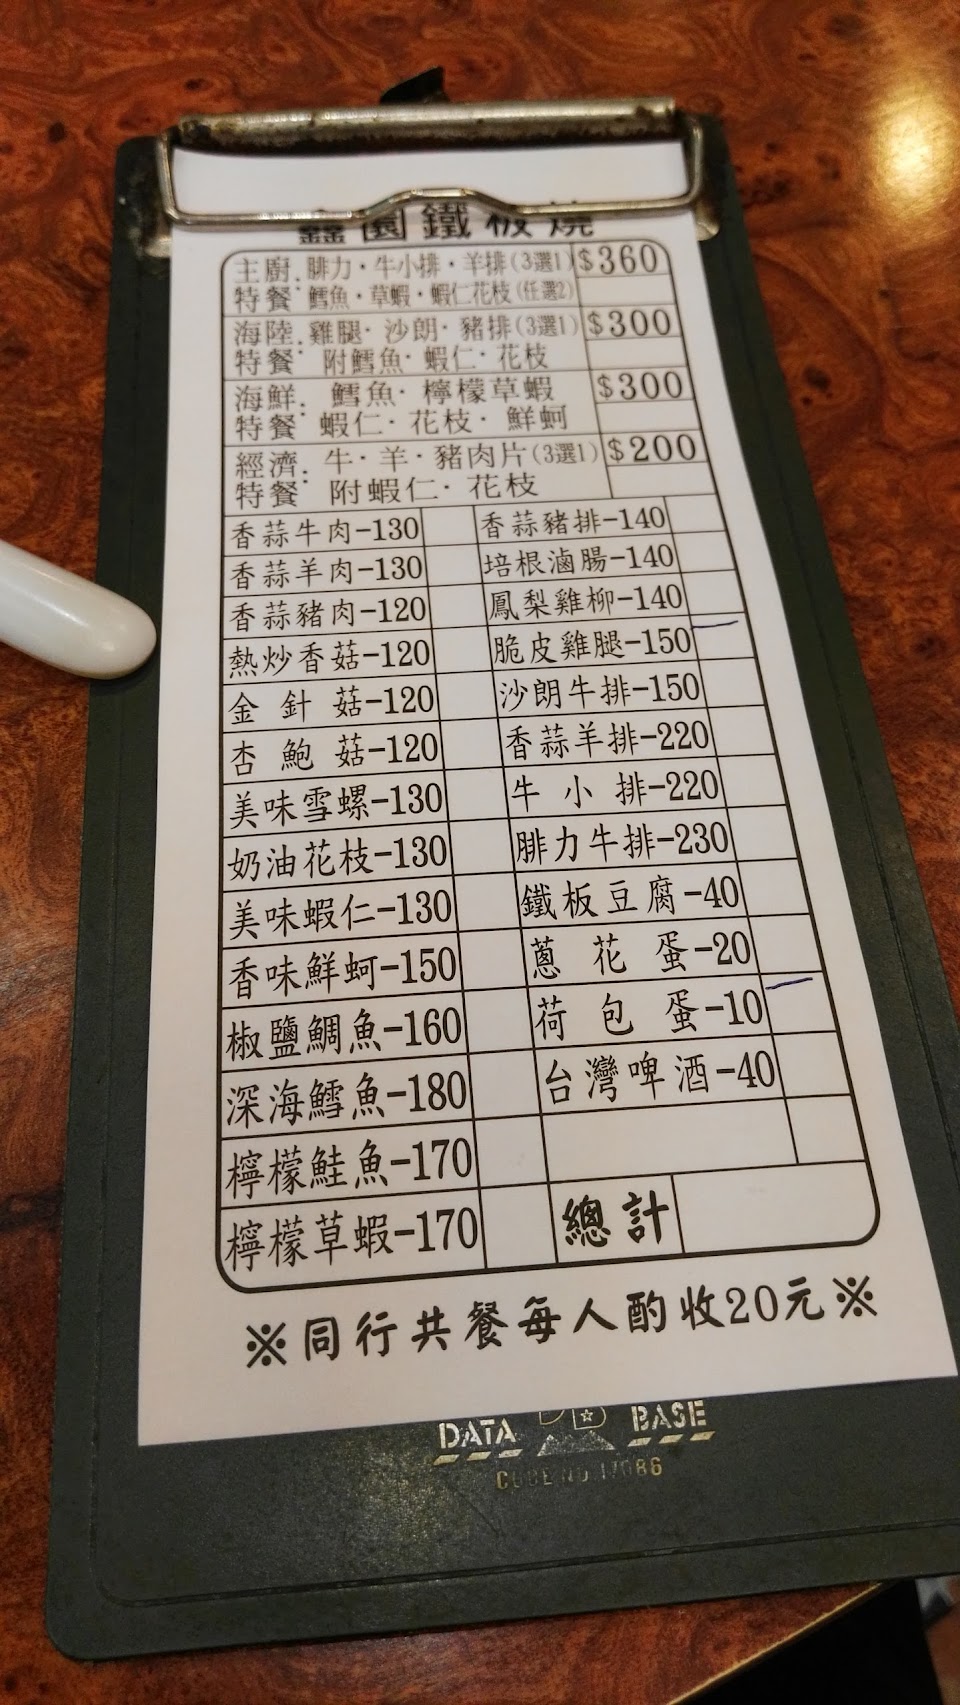 鑫園鐵板燒
主廚. 腓力·牛小排·羊排(3選1) $360
特餐 鱈魚·草蝦·蝦仁花枝(任選2)
海陸. 雞腿·沙朗·豬排(3選1) $300
特餐 附鱈魚·蝦仁·花枝
海鮮. 鱈魚·檸檬草蝦 $300
特餐 蝦仁·花枝·鮮蚵
經濟. 牛·羊·豬肉片(3選1) $200
特餐 附蝦仁·花枝
香蒜牛肉-130 香蒜豬排-140
香蒜羊肉-130 培根滷腸-140
香蒜豬肉-120 鳳梨雞柳-140
熱炒香菇-120 脆皮雞腿-150
金針菇-120 沙朗牛排-150
杏鮑菇-120 香蒜羊排-220
美味雪螺-130 牛小排-220
奶油花枝-130 腓力牛排-230
美味蝦仁-130 鐵板豆腐-40
香味鮮蚵-150 蔥花蛋-20
椒鹽鯛魚-160 荷包蛋-10
深海鱈魚-180 台灣啤酒-40
檸檬鮭魚-170
檸檬草蝦-170 總計
※同行共餐每人酌收20元※
DATA BASE
CODE NO 17086